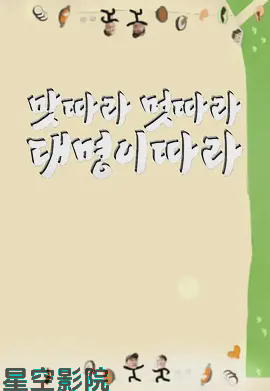 맛따라 멋따라
대명이따라
星空影院